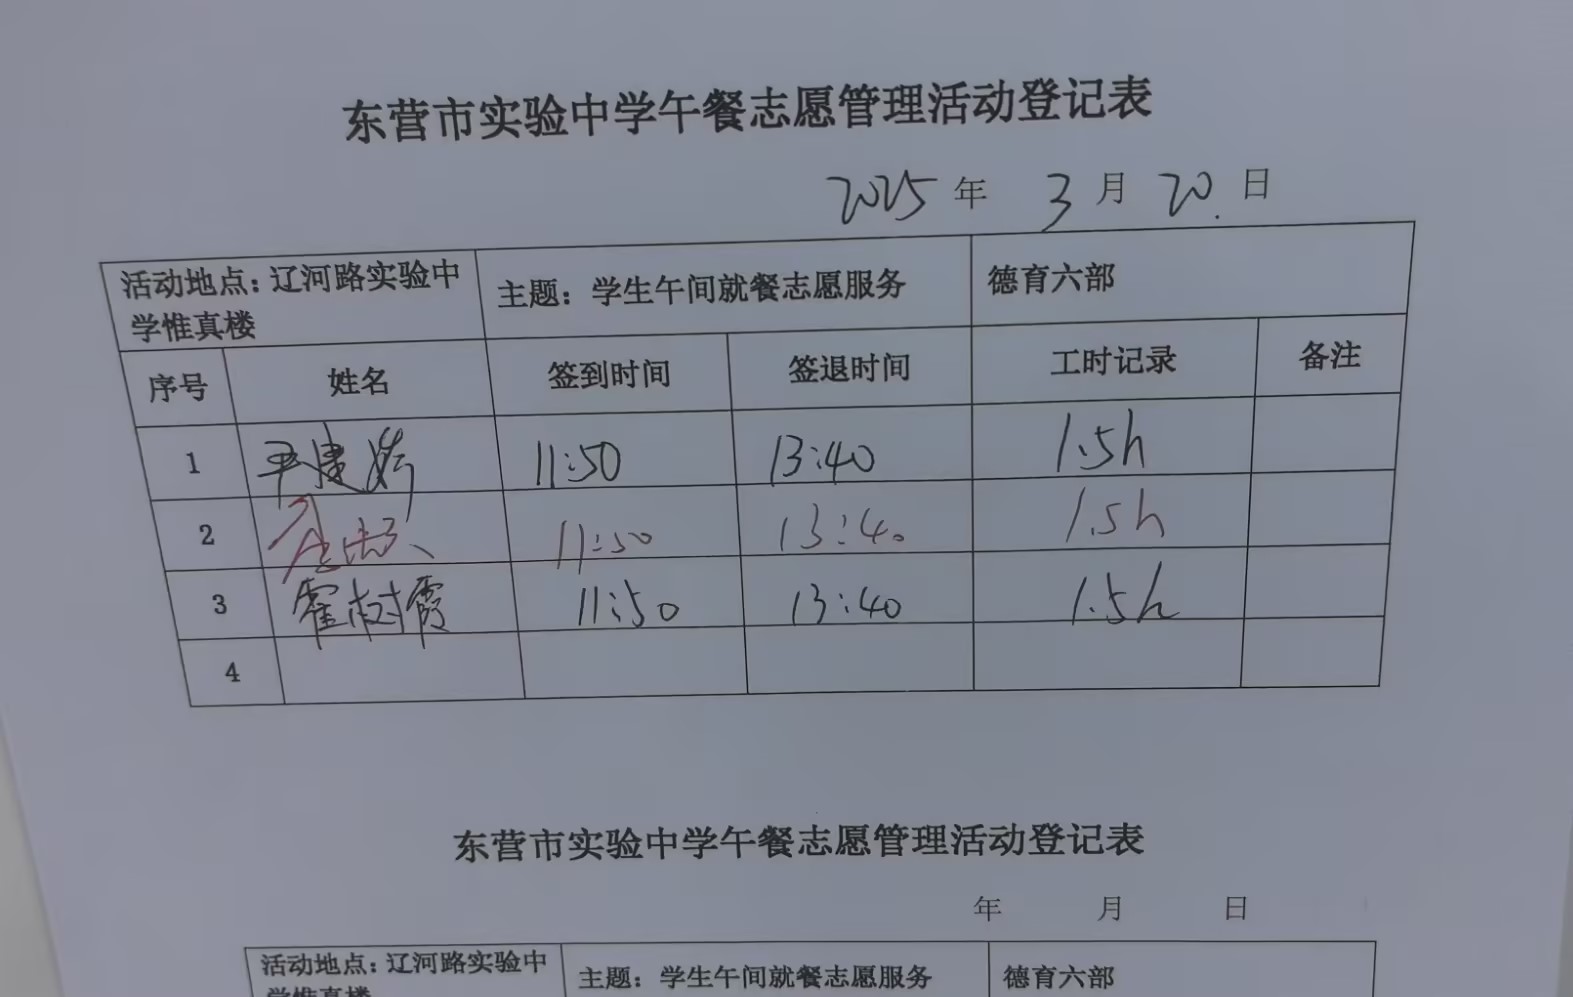 东营市实验中学午餐志愿管理活动登记表
2025年 3月 20.日
活动地点:辽河路实验中
学惟真楼
主题：学生午间就餐志愿服务
德育六部
序号 姓名 签到时间 签退时间 工时记录 备注
1 11:50 13:40 1.5h
2 11:50 13:40 1.5h
3 霍树霞 11:50 13:40 1.5h
4
东营市实验中学午餐志愿管理活动登记表
年 月 日
活动地点:辽河路实验中
学惟真楼
主题：学生午间就餐志愿服务
德育六部